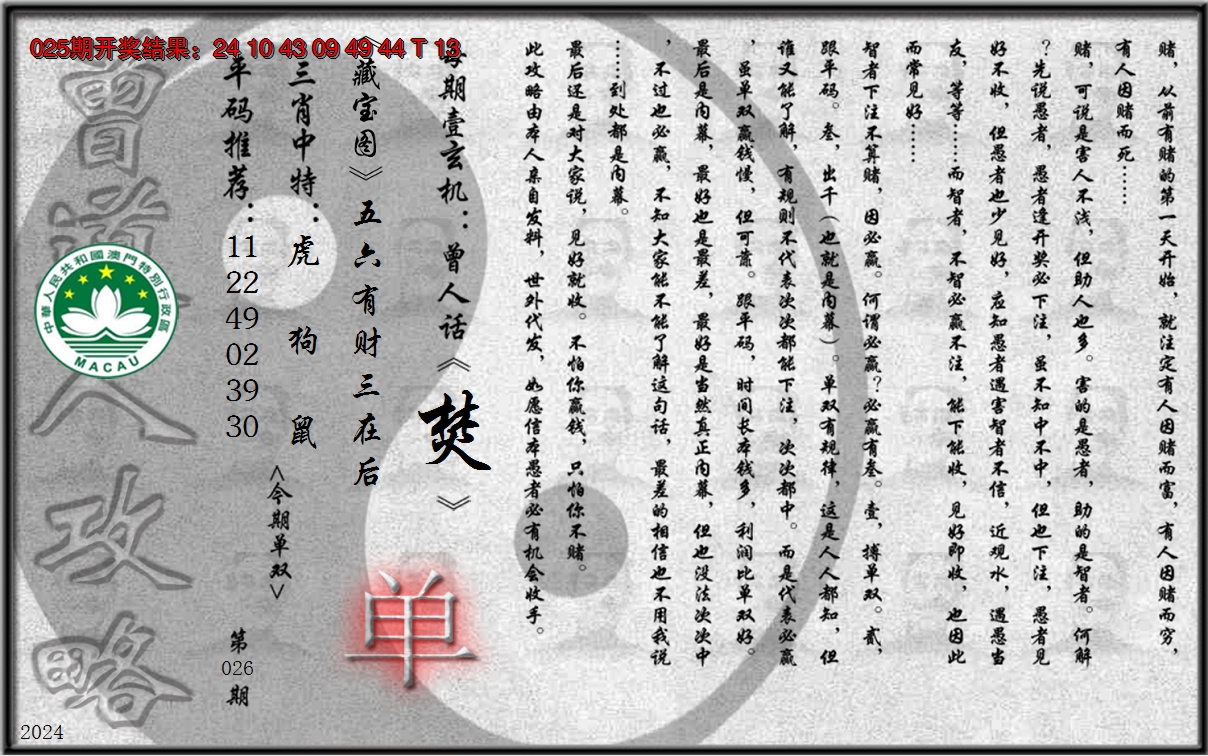 025期开奖结果：24 10 43 09 49 44 T 13
赌，从前有赌的第一天开始，就注定有人因赌而富，有人因赌而穷，
有人因赌而死……
赌，可说是害人不浅，但助人也多。害的是愚者，助的是智者。何解
？先说愚者，愚者逢开奖必下注，虽不知中不中，但也下注，愚者见
好不收，但愚者也少见好，应知愚者遇害智者不信，近观水，遇愚当
友，等等……而智者，不智必赢不注，能下能收，见好即收，也因此
而常见好……
智者下注不算赌，因必赢。何谓必赢？必赢有叁。壹，搏单双。贰，
跟平码。叁，出千（也就是内幕）。单双有规律，这是人人都知，但
谁又能了解，有规则不代表次次都能下注，次次都中。而是代表必赢
，虽单双赢钱慢，但可靠。跟平码，时间长本钱多，利润比单双好。
最后是内幕，最好也是最差，最好是当然真正内幕，但也没法次次中
，不过也必赢，不知大家能不能了解这句话，最差的相信也不用我说
……到处都是内幕。
最后还是对大家说，见好就收。不怕你赢钱，只怕你不赌。
此攻略由本人亲自发料，世外代发，如愿信本愚者必有机会收手。
每期壹玄机：曾人话《焚》
《藏宝图》五六有财三在后
单
三肖中特：虎 狗 鼠
<今期单双>
平码推荐：11 22 49 02 39 30
第026期
曾道人攻略
中華人民共和國澳門特別行政區
MACAU
2024